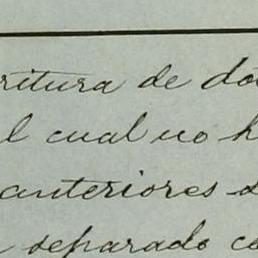 ritura de do
l cual no h
anteriores d
separado co